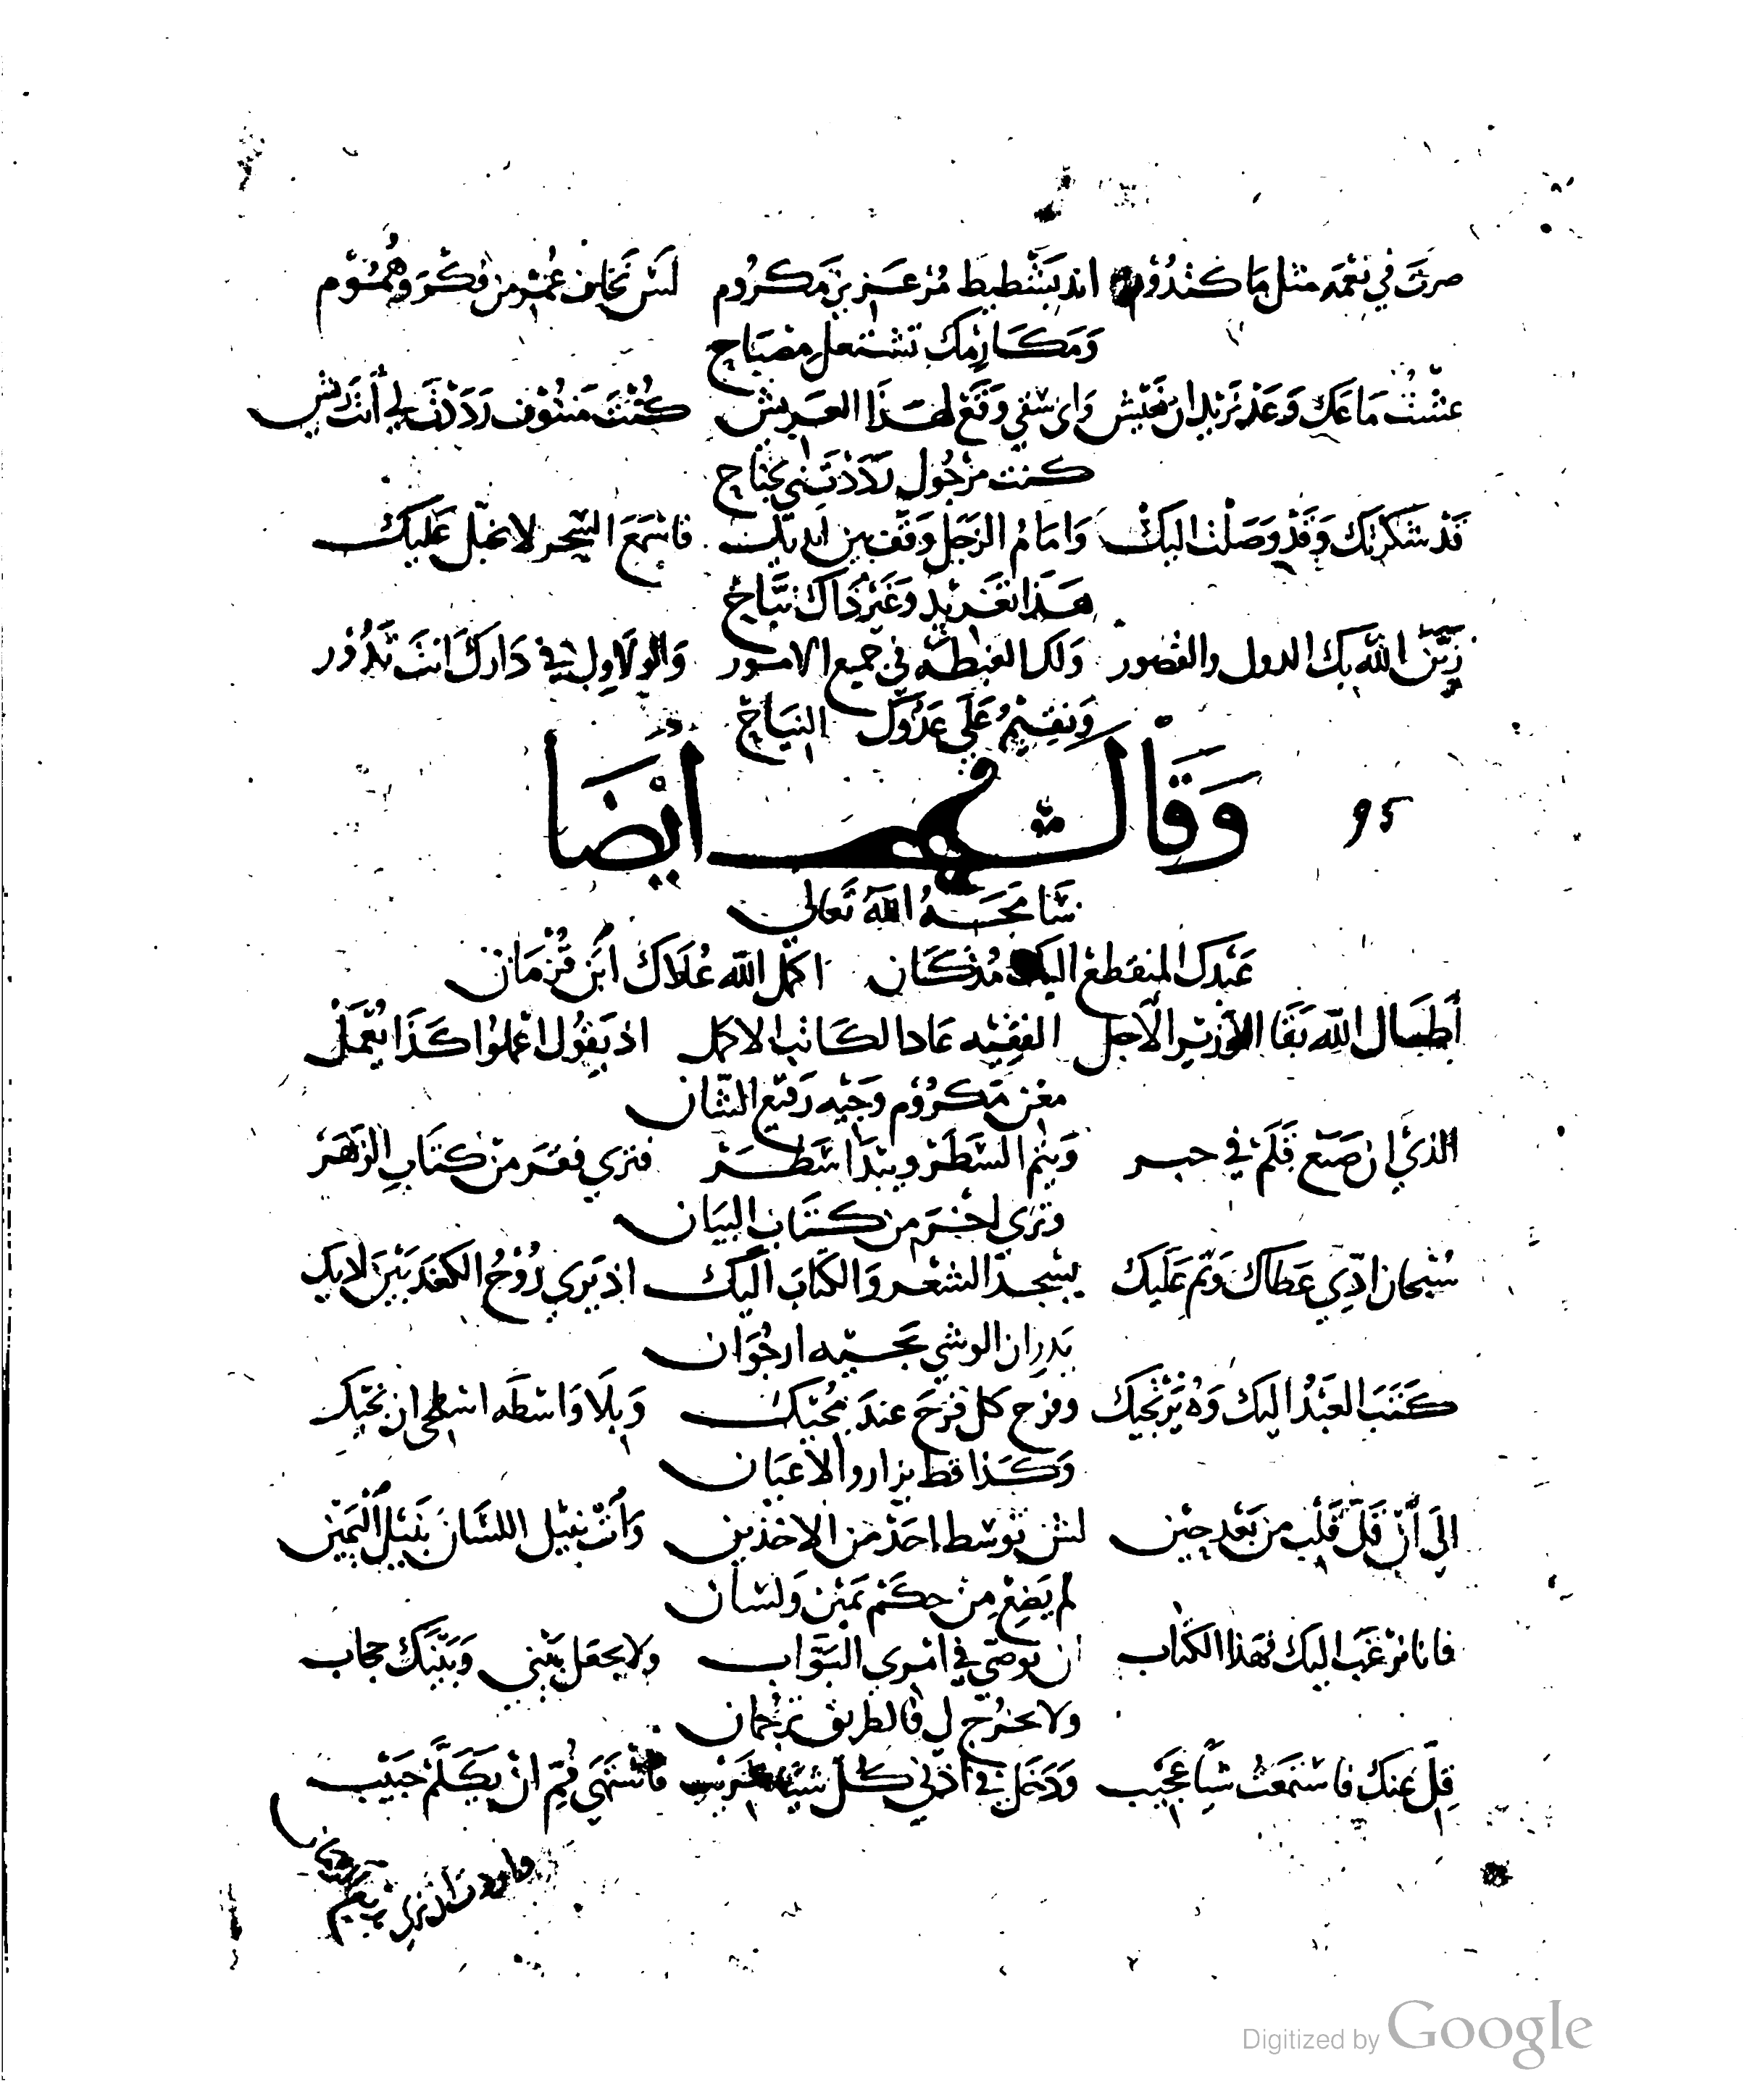 صرتَ في نعْمَه مثل مَا كتدُور انديَشْطيط مُرعَزيز مَكرُوم لَسْ تخاف غُمّ من فكْر وَهُمُوْم
وَمَكَارِمك تشتعل مصْبَاح
عشْت مَا مَعَك وَعَد نَريد ان نَعيْش وَاي سقي وَقَع لهَذا العَريش كُنْتَ مَنتُوف رَدَدْتَ لي أنت ريش
كنت مرْجُول رَدَدْتَني بجْنَاح
قَد شكرتك وَقَد وَصَلْت اليك وَامَامُ الزجَل وَقَف بين ايديك فاسْمَعَ السّحر لا يمَل عَليك
هَذَا تَغَريد وَغَيْر ذَاك نبَّاح
زَيّن الله بك الدول والقصور وَلك الغبطَه في جَميع الامور وَالوْلاول في دَارَك انتَ تَدُوْر
وَنقيْمُ عَلَى عَدُوّك النيَاح
وَقَالَ فيهَا ايْضَا
95
سَامَحَهُ اللهُ تَعَالى
عَبْدك المنقطعْ اليك مُذ كَان اكمَل الله عُلَاك ابَن قُزْمَان
أطَال الله بَقَا الوَزير الأجل الفقيْه عَاد الكَاتب الاكمل اذ يقُول اعْملوا كَذَا يُعْمَلْ
معْن مَكرُوْم وَجيْه رَفيع الشّان
الذي ان صَبَع قَلَمْ في حبر وَيتم السَّطَرْ ويبْدَا سَطَرْ فنري فقَر منْ كتَاب الزهَرْ
وترى لحنَم من كتَاب البيَان
سُبْحَان اذّي عَطَاك وَتم عَلَيك يسْجدّ الشعر وَالكتَابَ اليَك اذ يَري رُوْحُ الكغد بَيْنَ لايديك
يَدرِ ان الوشي يجيْه ارجُوَان
كَتَبَ العَبْدُ اليك وَهُ يَرْتجيك وفرح كل فَرَحَ عندَ مجيّك وَبلَا وَاسْطَه اسْتحى ان يجيك
وَكَذا قط يزاروا الأعيَان
الَي أنْ قَلّ قَلَبِ من بَعْد حِيْن لسْ توسط احَدْ من الاخذين وَأنْتْ نبيْل اللسَّان نبَيْل اليمَين
لم يَضِعْ منْ حكَم يَمَيْن وَلسَان
فانا نرْغَبَ اليك فهَذا الكتَاب ان توصّي في امْري البَوَاب ولا يجعَل بَيْني وَبَيْنَك حجاب
ولا يخرُج ل فالطريق تَرْجُمان
قِلّ عَنك فاسْتمَعتُ شيًا عَجَيْب وَدَخل في اذْني كل شيًا غَريب فاشْتهَى فُمِّ انْ يكَلَّمْ حَبيْب
Digitized by Google